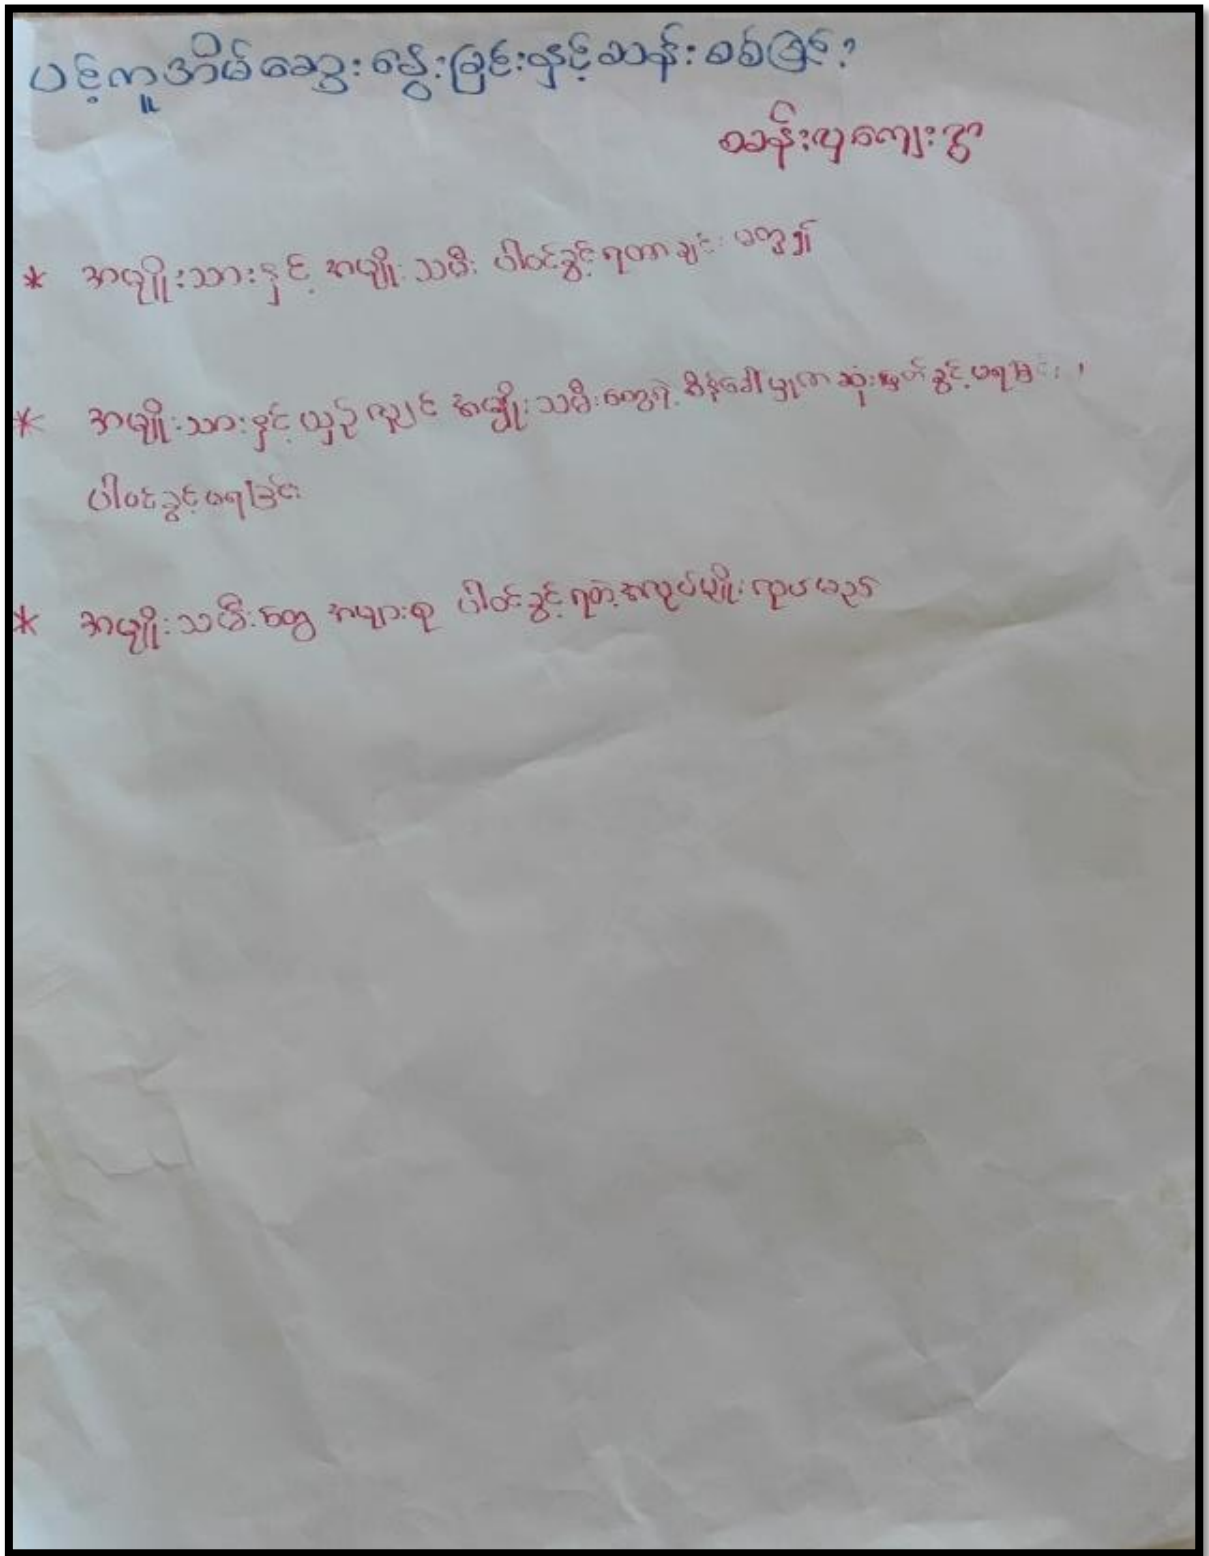 ပင့်ကူအိမ်ဆွေးနွေးခြင်းနှင့်ဆန်းစစ်ခြင်း
ကျေးရွာ
* အမျိုးသားနှင့် အမျိုးသမီး ပါဝင်ခွင့်ရတာချင်း မတူ
* အမျိုးသားနှင့်ယှဉ်လျှင် အမျိုးသမီးတွေရဲ့ စီမံခေါ်မှုက ဆုံးဖြတ်ခွင့်မရခြင်း၊
ပါဝင်ခွင့်မရခြင်း
* အမျိုးသမီးတွေ အများစု ပါဝင်ခွင့်ရတဲ့အလုပ်မျိုး